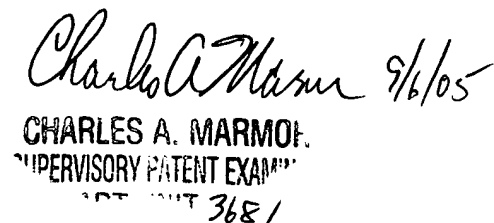 Charles A Marmor 9/6/05
CHARLES A. MARMOR
SUPERVISORY PATENT EXAMINER
ART UNIT 3681